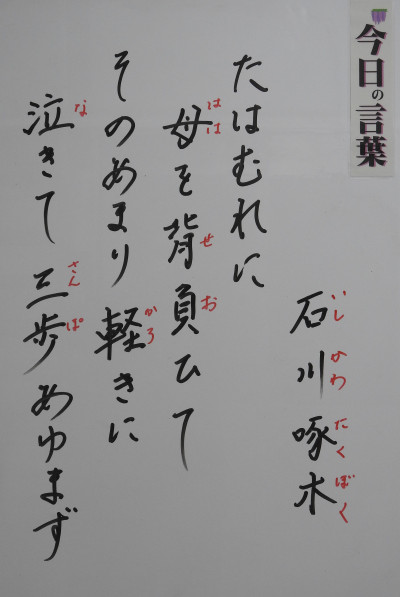 今日の言葉
石川啄木
いしかわたくぼく
たはむれに
母を背負ひて
はは せ お
そのあまり軽きに
かろ
泣きて三歩あゆまず
な さん ぽ